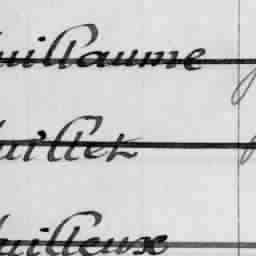 uillaume
uillet
uilleux